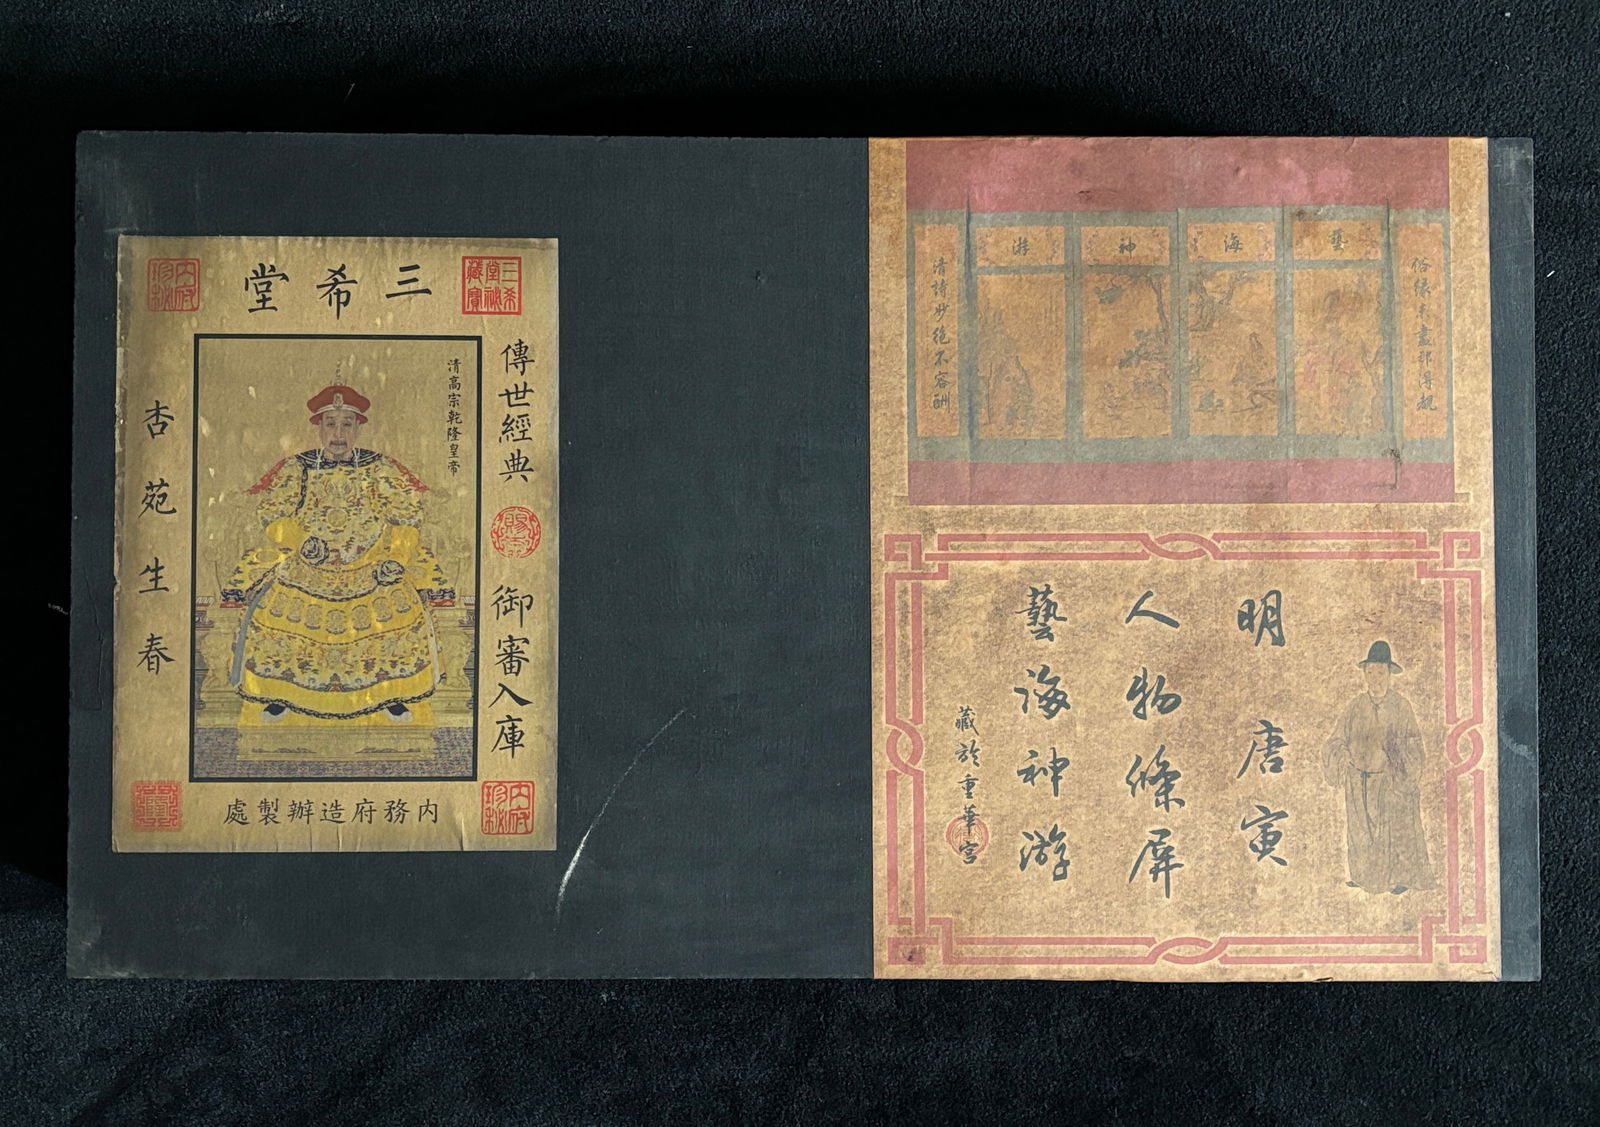 三希堂
三希堂秘藏寶
傳世經典
御審入庫
清高宗乾隆皇帝
杏苑生春
内府珍秘
内務府造辦製處
内府珍秘
藝海神游
俗緣未盡那得
清詩妙絕不容酬
明唐寅
人物條屏
藝海神游
藏於重華宮